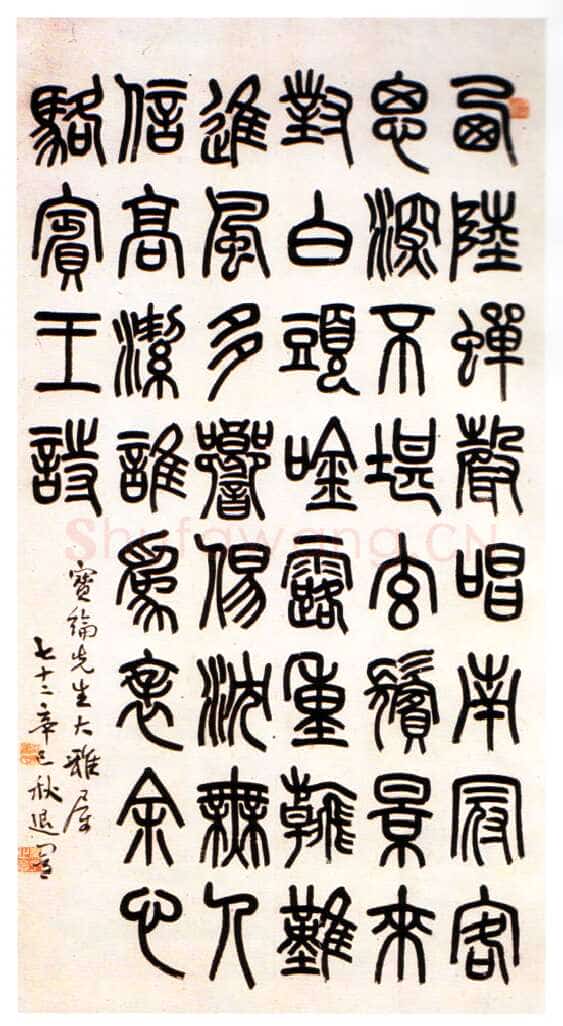 西陸蟬聲唱南冠客
思深不堪玄鬢景來
對白頭唫露重難
進風多響㑥沈無人
信高潔誰為表余心
駱賓王詩
寶綸先生大雅屬
七十二辛巳秋退闇
ShufaWang.CN